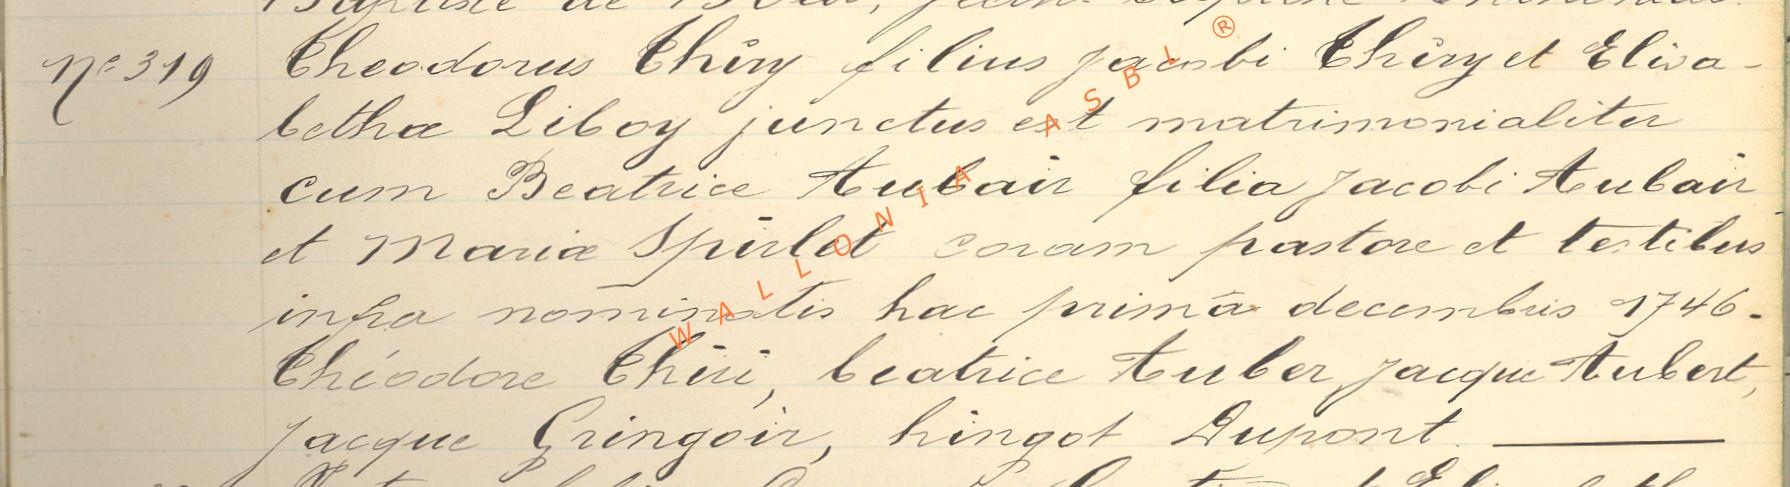 Baptiste de
Nº 319 Theodorus Thiry filius Jacobi Thiry et Elisa-
bethæ Liboy junctus est matrimonialiter
cum Beatrice Aubair filia Jacobi Aubair
et Mariæ Spirlet coram pastore et testibus
infra nominatis hac primâ decembris 1746.
Théodore Thiri, beatrice Auber, Jacque Aubert,
Jacque Gringoir, hingot Dupont.
WALLONIA ASBL ®